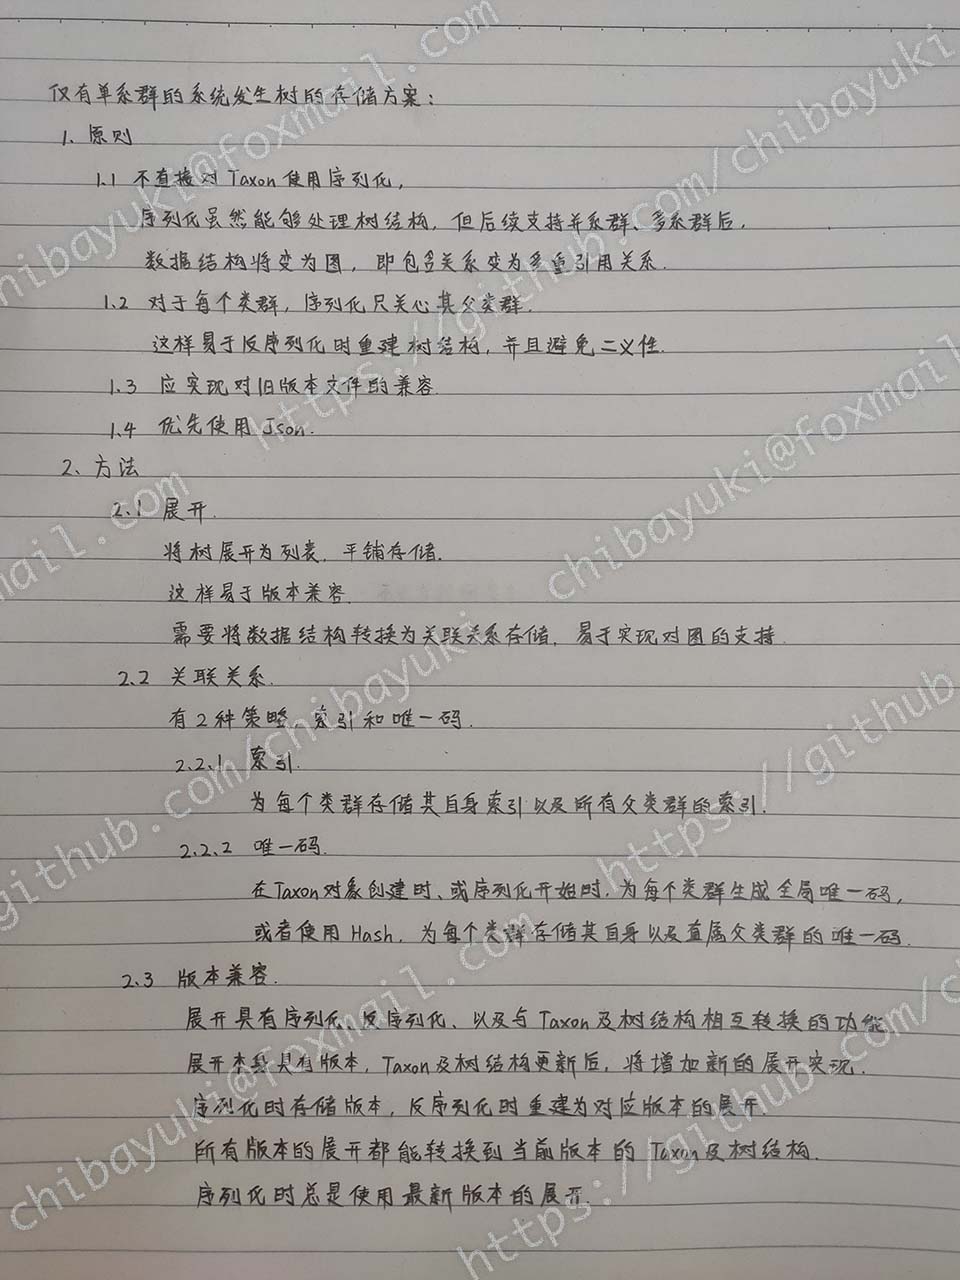 仅有单系群的系统发生树的存储方案：
1. 原则
1.1 不直接对Taxon使用序列化，
序列化虽然能够处理树结构，但后续支持并系群、多系群后，
数据结构将变为图，即包含关系变为多重引用关系.
1.2 对于每个类群，序列化只关心其父类群.
这样易于反序列化时重建树结构，并且避免二义性.
1.3 应实现对旧版本文件的兼容.
1.4 优先使用Json.
2. 方法
2.1 展开.
将树展开为列表，平铺存储.
这样易于版本兼容.
需要将数据结构转换为关联关系存储，易于实现对图的支持.
2.2 关联关系.
有2种策略，索引和唯一码.
2.2.1 索引.
为每个类群存储其自身索引以及所有父类群的索引.
2.2.2 唯一码.
在Taxon对象创建时、或序列化开始时，为每个类群生成全局唯一码，
或者使用Hash，为每个类群存储其自身以及直属父类群的唯一码.
2.3 版本兼容.
展开具有序列化、反序列化、以及与Taxon及树结构相互转换的功能
展开本身具有版本，Taxon及树结构更新后，将增加新的展开实现.
序列化时存储版本，反序列化时重建为对应版本的展开.
所有版本的展开都能转换到当前版本的Taxon及树结构.
序列化时总是使用最新版本的展开.
chibayuki@foxmail.com
https://github.com/chibayuki